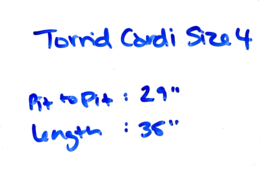 Torrid Cardi Size 4
Pit to Pit : 29"
Length : 36"